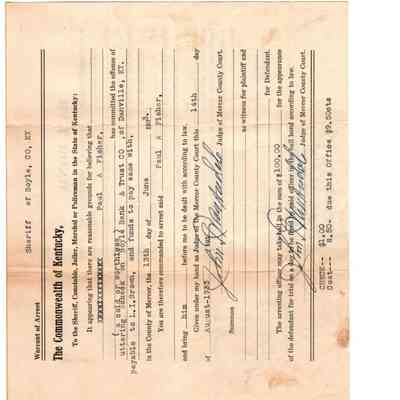 Sheriff of Boyle, CO, KY
Warrant of Arrest
The Commonwealth of Kentucky,
To the Sheriff, Constable, Jailer, Marshal or Policeman in the State of Kentucky:
It appearing that there are reasonable grounds for believing that
Paul A Fisher,
has committed the offense of
uttering
Boyle Bank & Trust CO of Danville, KY.
payable to L.I.Green, and funds to pay same with,
in the County of Mercer, the 13th day of June 193
You are therefore commanded to arrest said Paul A Fisher,
and bring him before me to be dealt with according to law.
Given under my hand as Judge of the Mercer County Court this 14th day
of August-1933
Judge of Mercer County Court.
Summons as witness for plaintiff and
for Defendant.
The arresting officer may take bail in the sum of $100.00 for the appearance
of the defendant for trial on a day to be fixed by said officer in the bail bond according to law.
Judge of Mercer County Court.
CHECK- $1.00
Cost-- 8.50. due this Office $9.50cts